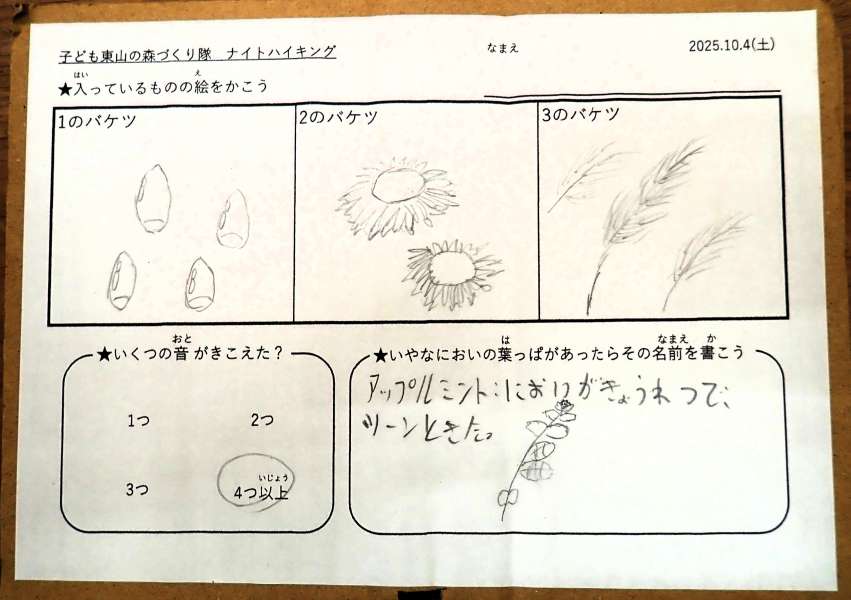 子ども東山の森づくり隊　ナイトハイキング
なまえ
2025.10.4(土)
★入っているものの絵をかこう
はい
え
1のバケツ
2のバケツ
3のバケツ
★いくつの音がきこえた？
おと
1つ
2つ
3つ
4つ以上
いじょう
★いやなにおいの葉っぱがあったらその名前を書こう
は
なまえ
か
アップルミント:においがきょうれつで、
ツーンときた。